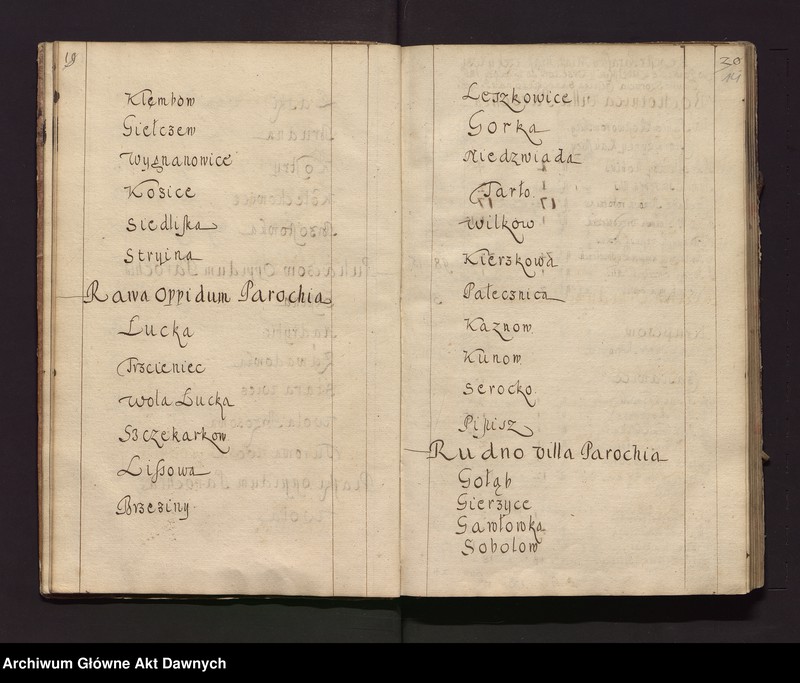 19
Kłembow
Giełczew
Wygnanowice
Kosice
Siedliska
Stryina
Rawa Oppidum Parochia
Łucka
Trzcieniec
Wola Łucka
Szczekarkow
Lisowa
Brzeziny
20
14
Leszkowice
Gorka
Niedzwiada
Tarło
Wilkow
Kierzkowa
Pałecznica
Kaznow
Kunow
Serocko
Pipisz
Rudno Villa Parochia
Gołąb
Gierzyce
Gawłowka
Sobolow
Archiwum Główne Akt Dawnych